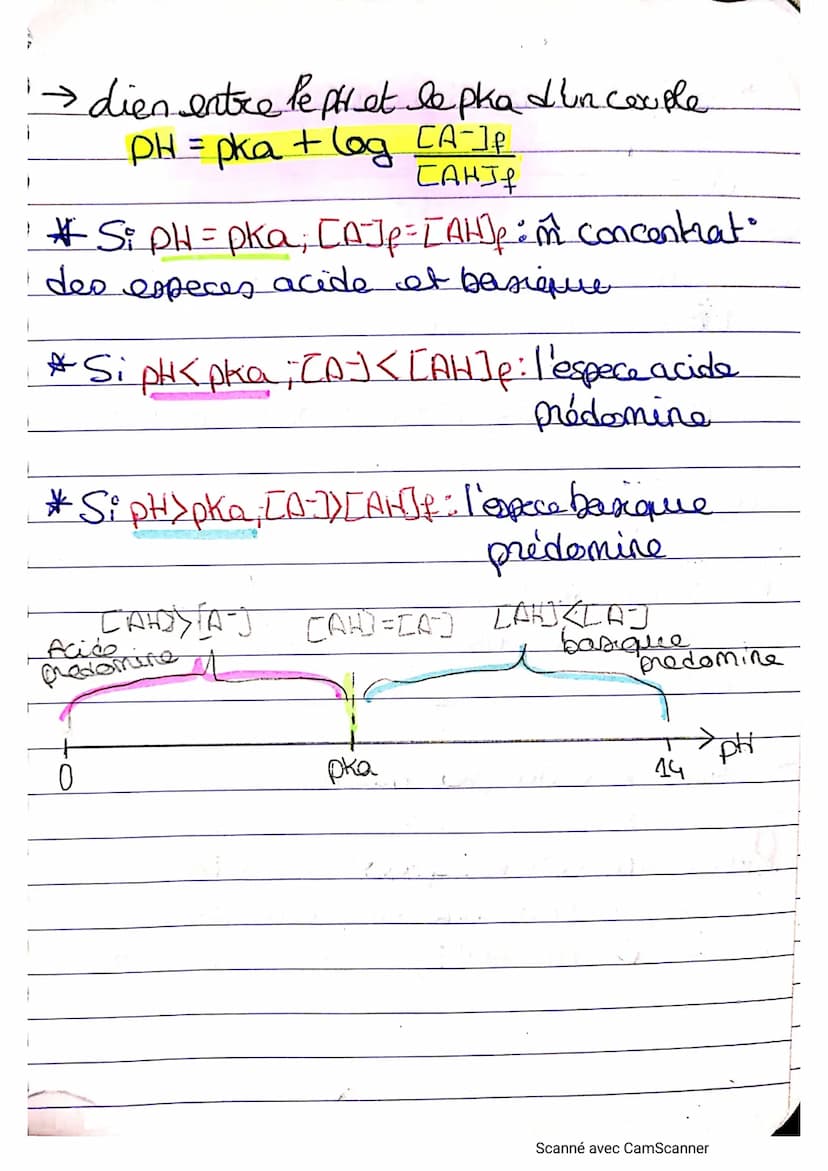 → Lien entre le pH et le pka d'un couple
pH = pka + log [A-]f / [AH]f
* Si pH = pka, [A-]f = [AH]f : m̂ concentrat°
des especes acide et basique
* Si pH < pka ; [A-] < [AH]f : l'espece acide
prédomine
* Si pH > pka, [A-] > [AH]f : l'espece basique
prédomine
[AH] > [A-] [AH] = [A-] [AH] < [A-]
Acide
predomine
basique
predomine
0 pka 14 pH
Scanné avec CamScanner